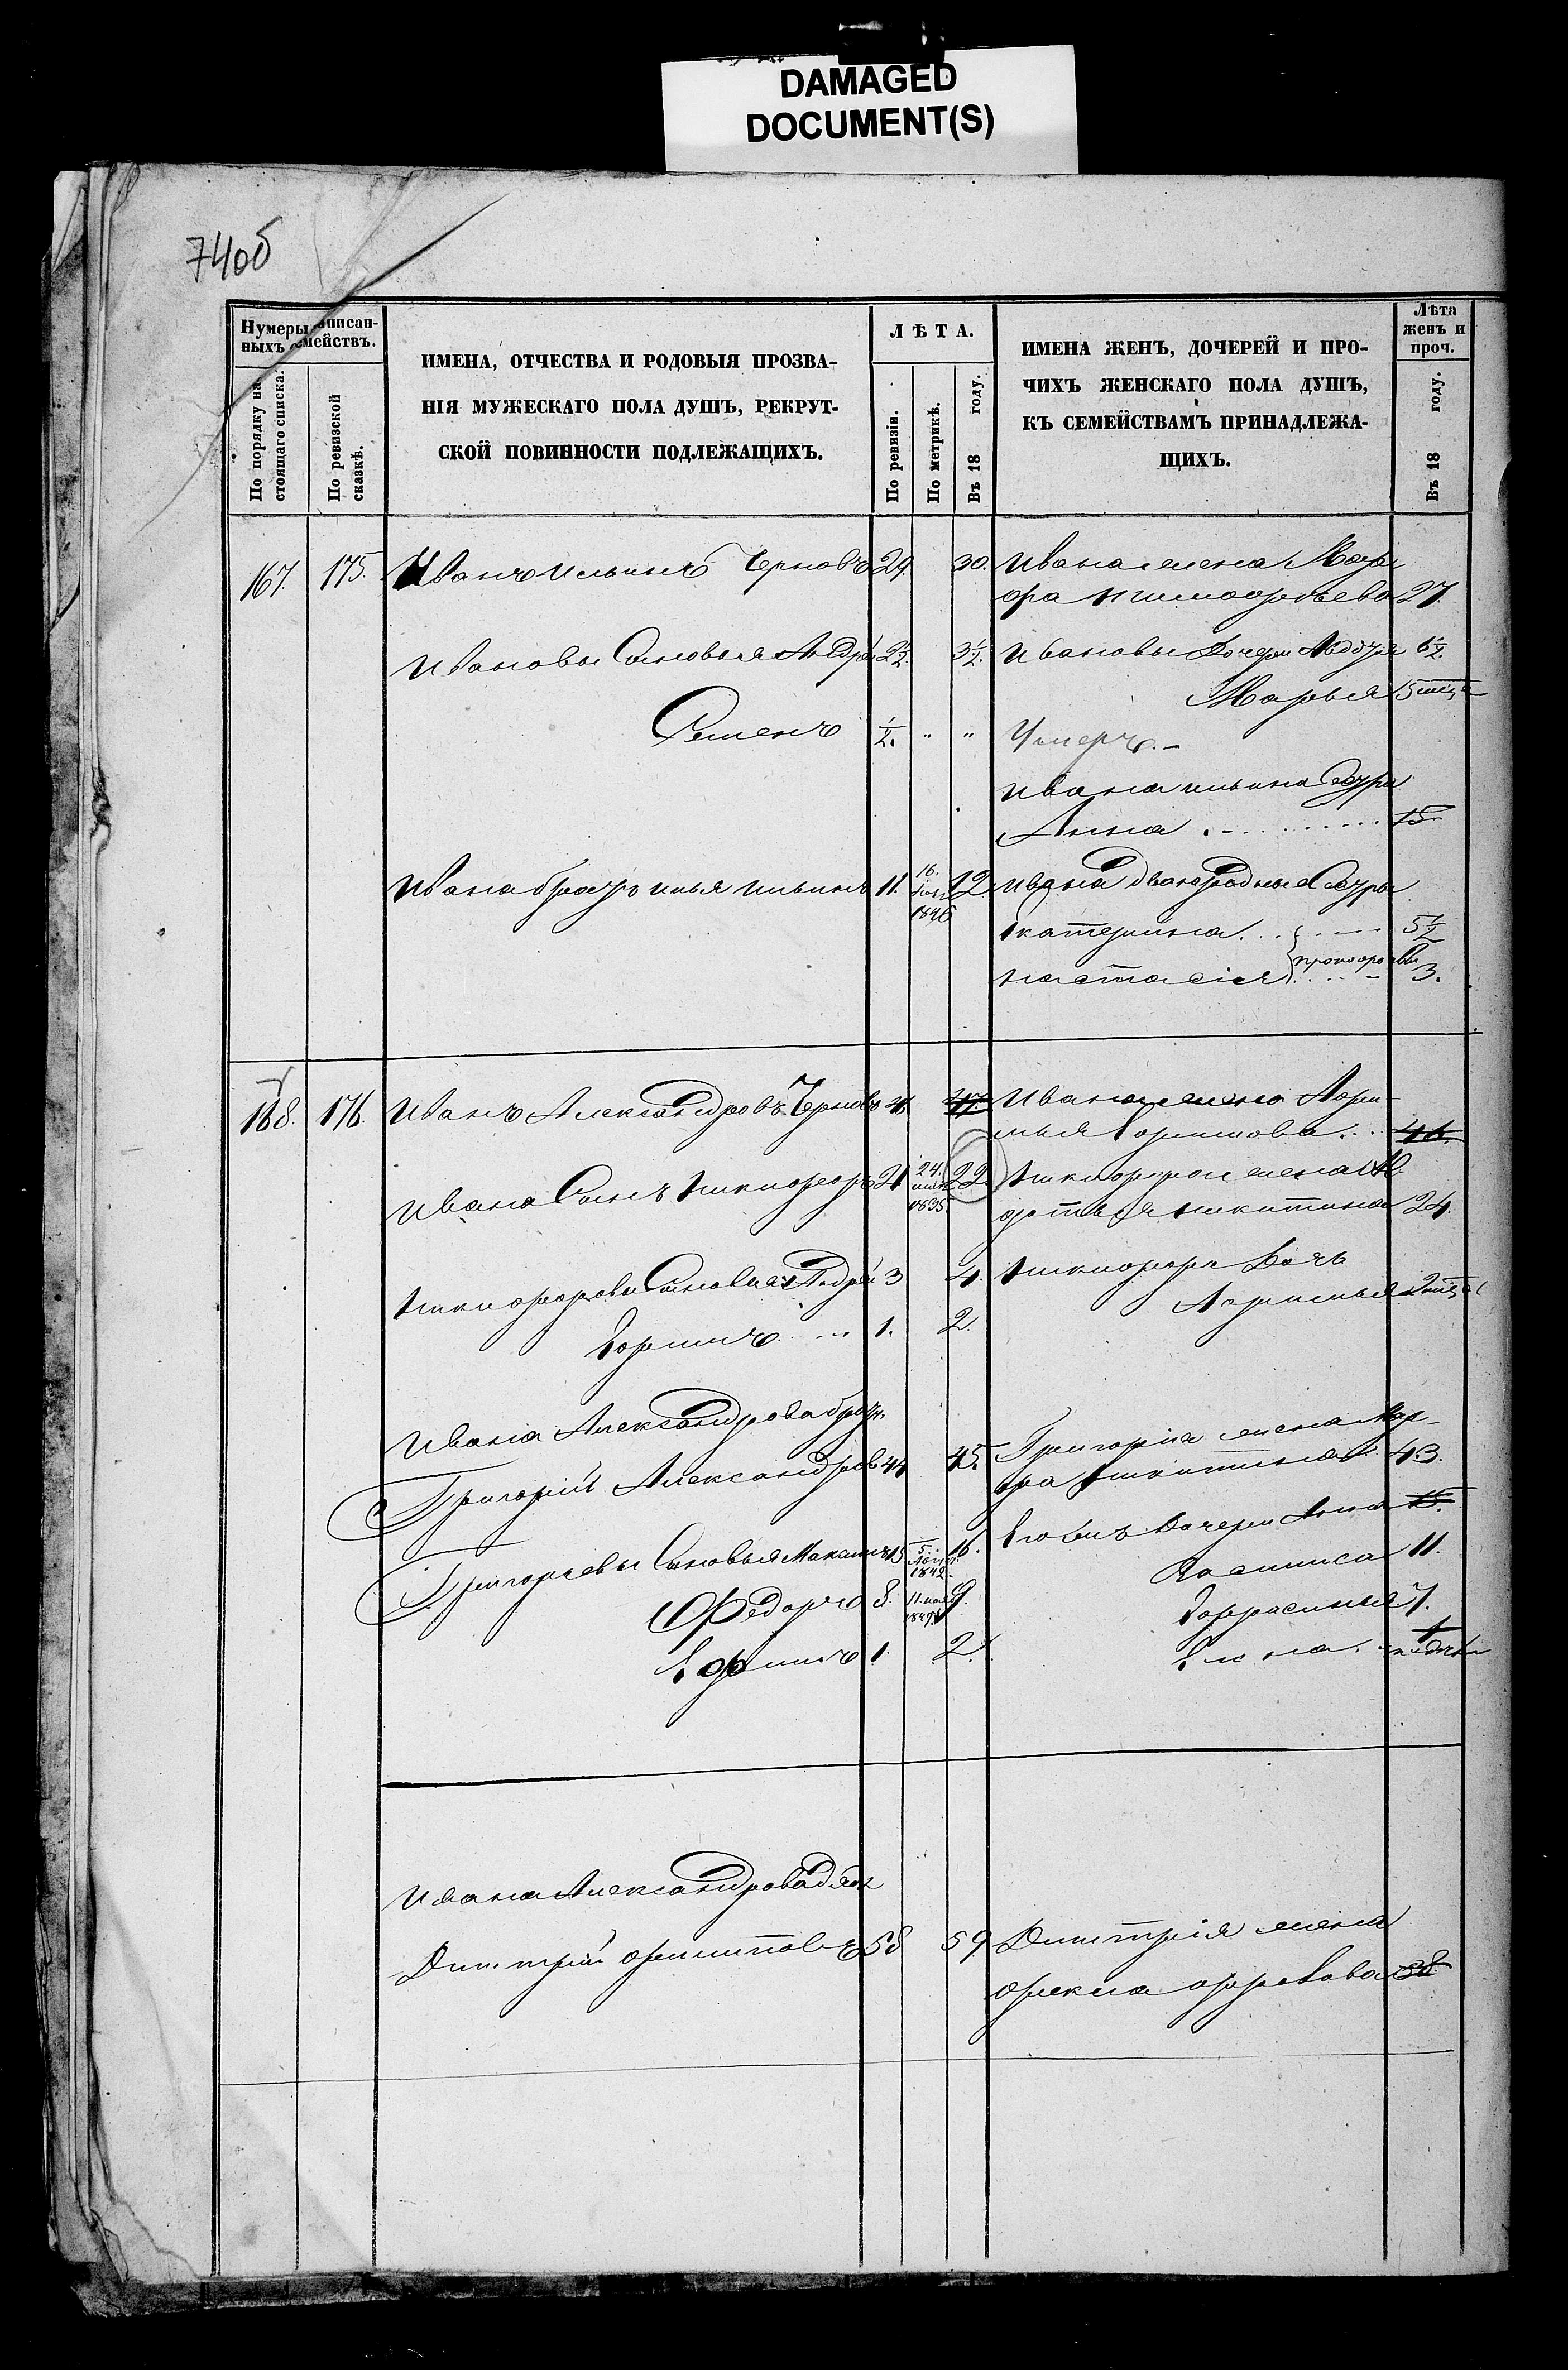 DAMAGED
DOCUMENT(S)
740б
Нумеры записан-
ныхъ семействъ.
По порядку на
стоящаго списка.
По ревизской
сказкѣ.
ИМЕНА, ОТЧЕСТВА И РОДОВЫЯ ПРОЗВА-
НІЯ МУЖЕСКАГО ПОЛА ДУШЪ, РЕКРУТ-
СКОЙ ПОВИННОСТИ ПОДЛЕЖАЩИХЪ.
ЛѢТА.
По ревизіи.
По метрикѣ.
Въ 18 году.
ИМЕНА ЖЕНЪ, ДОЧЕРЕЙ И ПРО-
ЧИХЪ ЖЕНСКАГО ПОЛА ДУШЪ,
КЪ СЕМЕЙСТВАМЪ ПРИНАДЛЕЖА-
ЩИХЪ.
Лѣта
женъ и
проч.
Въ 18 году.
167. 175. Иванъ Ильинъ Черновъ 29. 30. Ивана жена Мав
ра Тимофѣева 27.
Ивановы Сыновья Андрей 2½. 3½. Ивановы Дочери Авдотья 6½.
Марья 5 мѣся
Семенъ ½. " " Умеръ.-
Ивана ильина Сестра
Анна 15
Ивана братъ илья ильинъ 11. 16. 1846 12 Ивана двоюродныя Сестры
Екатерина 5½
Настасія Прокофьевы 3.
168. 176. Иванъ Александровъ Черновъ 46 47. Ивана жена
Ефимова 46.
Ивана Сынъ Никифоръ 21 24. 1835. 22 Никифора жена
Никитина 24.
Никифоровы Сыновья Андрей 3 4. Никифора Дочь
Агрипина 2 мѣся
Ефимъ 1. 2.
Ивана Александрова братъ
Григорій Александровъ 44 45. Григорія жена Мар-
фа Никитина 43.
Григорьевы Сыновья Максимъ 15 5. 1842 16. Дочери Анна 15.
Василиса 11.
Федоръ 8. 11. 1849 9. Ефросинья 7.
Ефимъ 1. 2. Елена
Ивана Александрова дядя
Дмитрій Филиповъ 58 59 Дмитрія жена
Фекла 58.